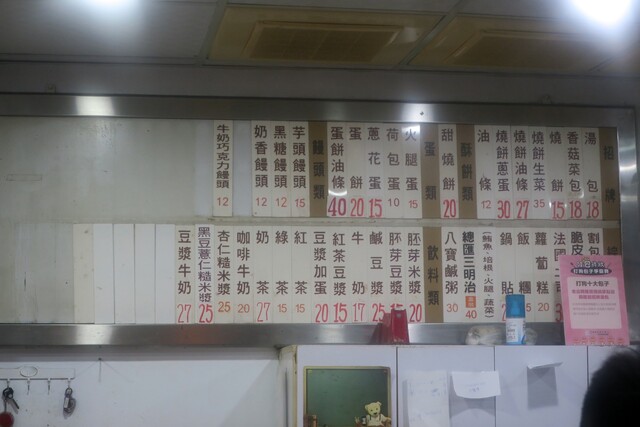 招牌
湯包 18
香菇菜包 18
法燒餅 15
燒餅生菜 35
燒餅油條 27
燒餅蔥蛋 30
油條 12
酥餅類
甜燒餅 20
蛋類
火腿蛋 15
荷包蛋 10
蔥花蛋 15
蛋餅 20
蛋餅油條 40
饅頭類
芋頭饅頭 15
黑糖饅頭 12
奶香饅頭 12
牛奶巧克力饅頭 12
割包
脆皮
法國
蘿蔔糕 20
飯糰
鍋貼
(鮪魚·培根·火腿·蔬菜)
總匯三明治 40
八寶鹹粥 30
飲料類
胚芽米漿 20
胚芽豆漿 15
鹹豆漿 25
牛奶 17
紅茶豆漿 15
豆漿加蛋 20
紅茶 15
綠茶 15
奶茶 27
咖啡牛奶 20
杏仁糙米漿 25
黑豆薏仁糙米漿 25
豆漿牛奶 27
打狗十大包子